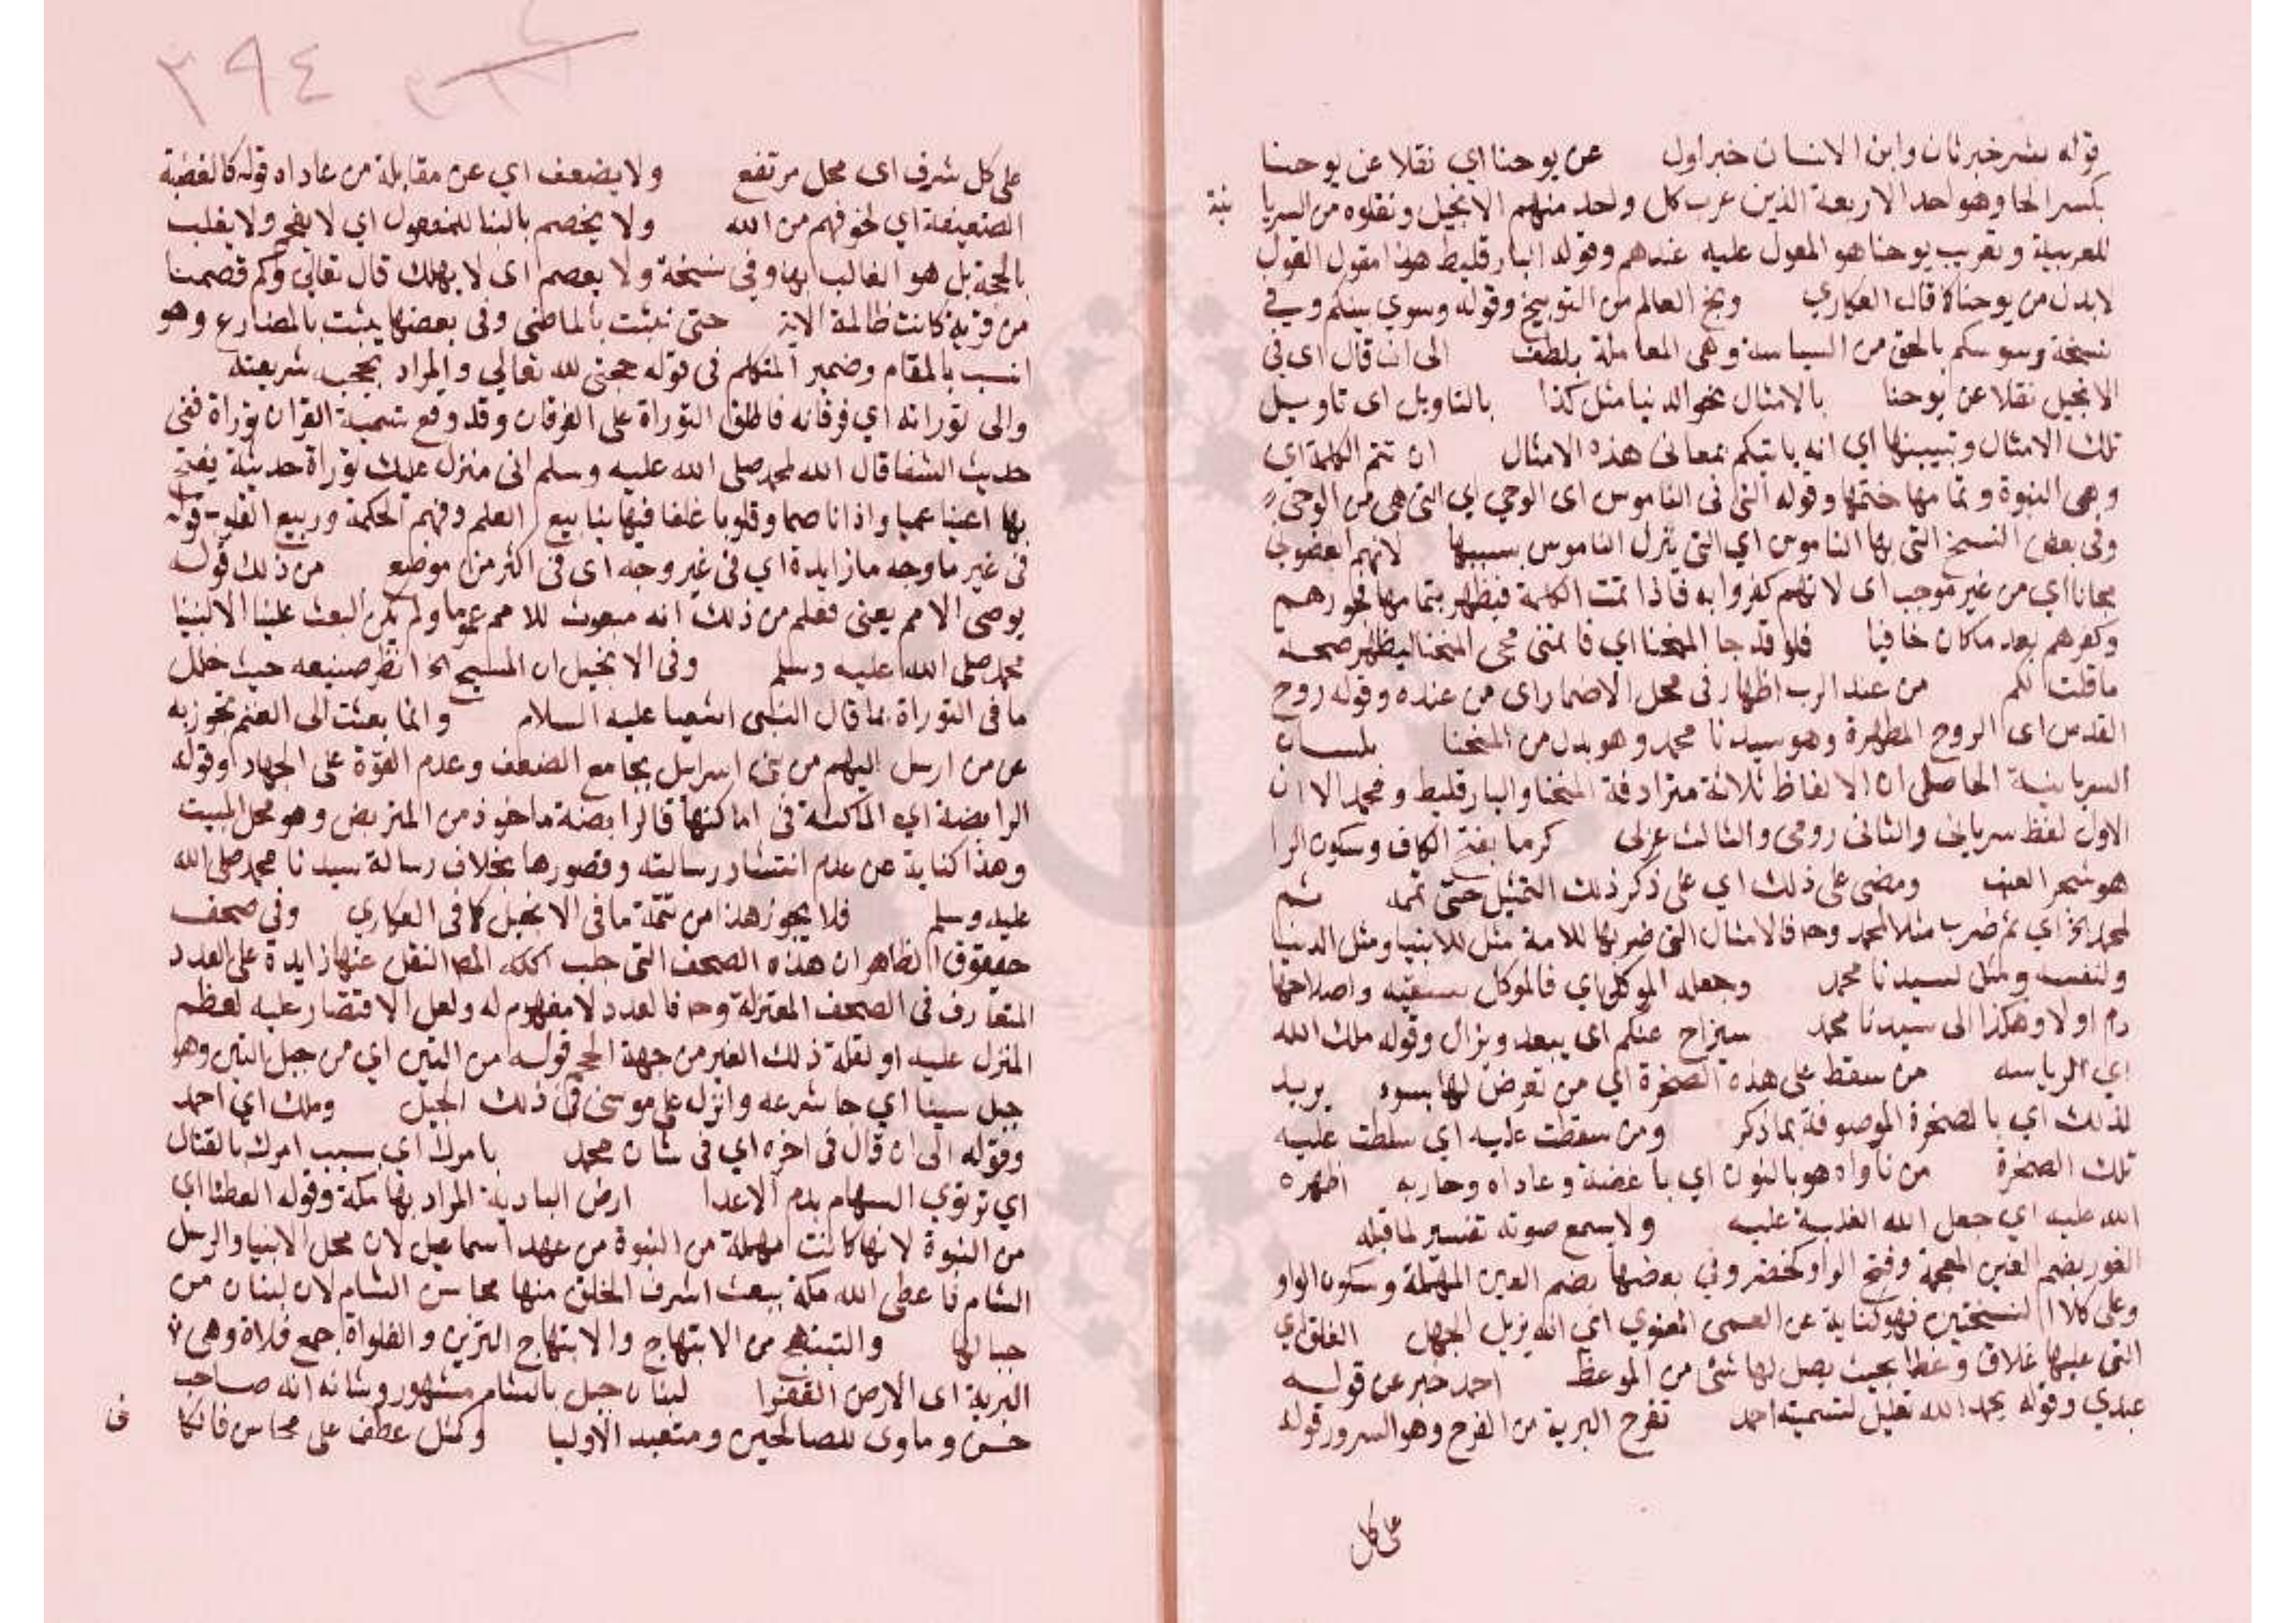 قوله بشر خبر ثان وابن الانسان خبر اول عن يوحنا اي نقلا عن يوحنا
بكسر الحا وهو احد الاربعة الذين عرب كل واحد منهم الانجيل ونقلوه من السريا نية
للعربية وتعريب يوحنا هو المعول عليه عندهم وقوله البارقليط هذا مقول القول
لابدل من يوحنا كما قال العكاري وبخ العالم من التوبيخ وقوله وسوي بينكم وفي
نسخة وسوسكم بالحق من السياسة وهي المعاملة بلطف الى ان قال اى في
الانجيل نقلا عن يوحنا بالامثال نحو الدنيا مثل كذا بالتاويل اى تاويل
تلك الامثال وتبيينها اي انه ياتيكم بمعانى هذه الامثال ان تتم الكلمة اي
وهى النبوة وتمامها ختمها وقوله التى فى الناموس اى الوحي اي التى هى من الوحي
وفى بعض النسخ التى بها الناموس اي التى ينزل الناموس بسببها لانهم ابغضونى
مجانا اي من غير موجب اى لانهم كفروا به فاذا تمت الكلمة فيظهر بتمامها فجورهم
وكفرهم بعد ما كان خافيا فلو قد جا المنحمنا اي فاتمنى مجى المنحمنا ليظهر صحة
ما قلت لكم من عند الرب اظهار فى محل الاضمار اى من عنده وقوله روح
القدس اى الروح المطهرة وهو سيدنا محمد وهو بدل من المنحمنا بلسان
السريانية الحاصل ان الالفاظ ثلاثة مترادفة المنحمنا والبارقليط ومحمد الا ان
الاول لفظ سريانى والثانى رومى والثالث عربى كرما بفتح الكاف وسكون الرا
هو شجر العنب ومضى على ذلك اي على ذكر ذلك التمثيل حتى تممه ثم
لمحمد الخ اي ثم ضرب مثلا لمحمد وح فالامثال التى ضربها للامة مثل للانبيا ومثل الدنيا
ولنفسه ومثل لسيدنا محمد وجعله الموكل اي فالموكل بسقيه واصلاحها
ادم اولا وهكذا الى سيدنا محمد سيزاح عنكم اى يبعد ويزال وقوله ملك الله
اي الرياسه من سقط على هذه الصخرة اي من تعرض لها بسوء يريد
لذلك اي بالصخرة الموصوفة بما ذكر ومن سقطت عليه اي سلطت عليه
تلك الصخرة من ناواه هو بالنون اي باغضه وعاداه وحاربه اظهره
الله عليه اي جعل الله الغلبة عليه ولا يسمع صوته تفسير لما قبله
الغور بضم الغين المعجمة وفتح الواو كخضر وفي بعضها بضم العين المهملة وسكون الواو
وعلى كلا النسختين فهو كناية عن العمى المعنوي اي انه يزيل الجهل الغلق اي
التى عليها غلاف وغطا بحيث يصل لها شئ من الموعظ احمد خبر عن قوله
عبدي وقوله يحمد الله تعليل لتسميته احمد تفرح البرية من الفرح وهو السرور قوله
على كل
٣٩٤
على كل شرف اى محل مرتفع ولا يضعف اي عن مقابلة من عاداه قوله كالقضبة
الضعيفة اي لخوفهم من الله ولا يخصم بالبنا للمفعول اي لا يفحم ولا يغلب
بالحجة بل هو الغالب بها وفى نسخة ولا يعصم اى لا يهلك قال تعالى وكم قصمنا
من قرية كانت ظالمة الاية حتى نبئت بالماضى وفى بعضها يثبت بالمضارع وهو
انسب بالمقام وضمير المتكلم فى قوله حجتى لله تعالى والمراد بحجيه شريعته
والى توراته اي فرقانه فاطلق التوراة على الفرقان وقد وقع تسمية القران توراة ففى
حديث الشفا قال الله لمحمد صلى الله عليه وسلم انى منزل عليك توراة حديثة يفتح
بها اعينا عميا واذانا صما وقلوبا غلفا فيها ينابيع العلم وفهم الحكمة وربيع القلوب قوله
فى غير ما وجه ما زايدة اي فى غير وجه اى فى اكثر من موضع من ذلك قوله
يوصى الامم يعنى فعلم من ذلك انه مبعوث للامم عموما ولم يكن البعث علينا الا لنبينا
محمد صلى الله عليه وسلم وفى الانجيل ان المسيح الخ انظر صنيعه حيث خلل
ما فى التوراة بما قال النبى اشعيا عليه السلام وانما بعثت الى الغنم تجوز به
عن من ارسل اليهم من بنى اسراييل بجامع الضعف وعدم القوة على الجهاد وقوله
الرابضة اي الماكثة فى اماكنها فالرابضة ماخوذ من المتربض وهو محل المبيت
وهذا كناية عن عدم انتشار رسالته وقصورها بخلاف رسالة سيدنا محمد صلى الله
عليه وسلم فلا يجوز هذا من تتمة ما فى الانجيل كما فى العكاري وفى صحف
حبقوق الظاهر ان هذه الصحف التى النقل عنها زايدة على العدد
المتعارف فى الصحف المنزلة وح فالعدد لا مفهوم له ولعل الاقتصار عليه لعظم
المنزل عليه او لقلة ذلك الغير من جهة الحجم قوله من التين اي من جبل التين وهو
جبل سينا اي جا شرعه وانزل على موسى فى ذلك الجبل وملك اي احمد
وقوله الى ان قال فى اخره اي فى شان محمد بامرك اي بسبب امرك بالقتال
اي ترتوي السهام بدم الاعدا ارض البادية المراد بها مكة وقوله العطشا اي
من النبوة لانها كانت مهملة من النبوة من عهد اسماعيل لان محل الانبيا والرسل
الشام فاعطى الله مكة ببعث اشرف الخلق منها محاسن الشام لان لبنان من
جبالها والتبتهج من الابتهاج والابتهاج التزين والفلواة جمع فلاة وهى
البرية اى الارض القفرا لبنان جبل بالشام مشهور وشانه انه صاحب
حسن وماوى للصالحين ومتعبد الاوليا وكمثل عطف على محاسن فالكا فى